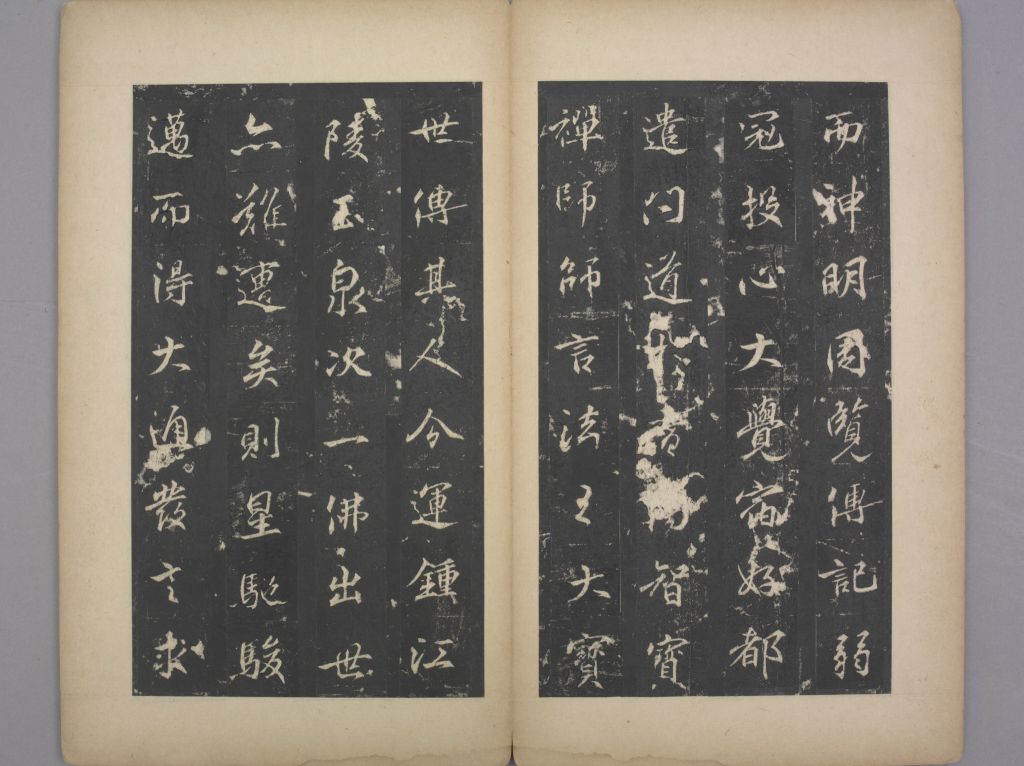 而神明因覽傳記弱
冠投心大覺宿好都
遣問道智寶
禪師師言法王大寶
世傳其人今運鍾江
陵玉泉次一佛出世
亦難遭矣則星馳駿
邁而得大通發言求